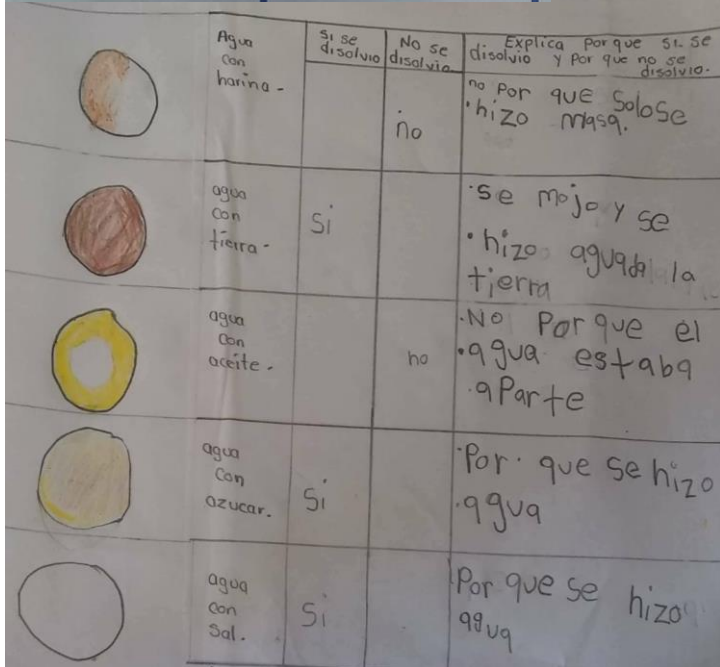 Agua
con
harina-
Si se
disolvio
No se
disolvio
Explica Porque si. se
disolvio y Por que no se
disolvio.
no
no Por que Solo se
·hizo masa.
agua
con
tierra-
Si
·Se mojo y se
·hizo aguada la
tierra
agua
con
aceite-
no
·No Por que el
·agua estaba
·aParte
agua
con
azucar.
Si
·Por que se hizo
·agua
agua
con
Sal.
Si
Por que se hizo
agua